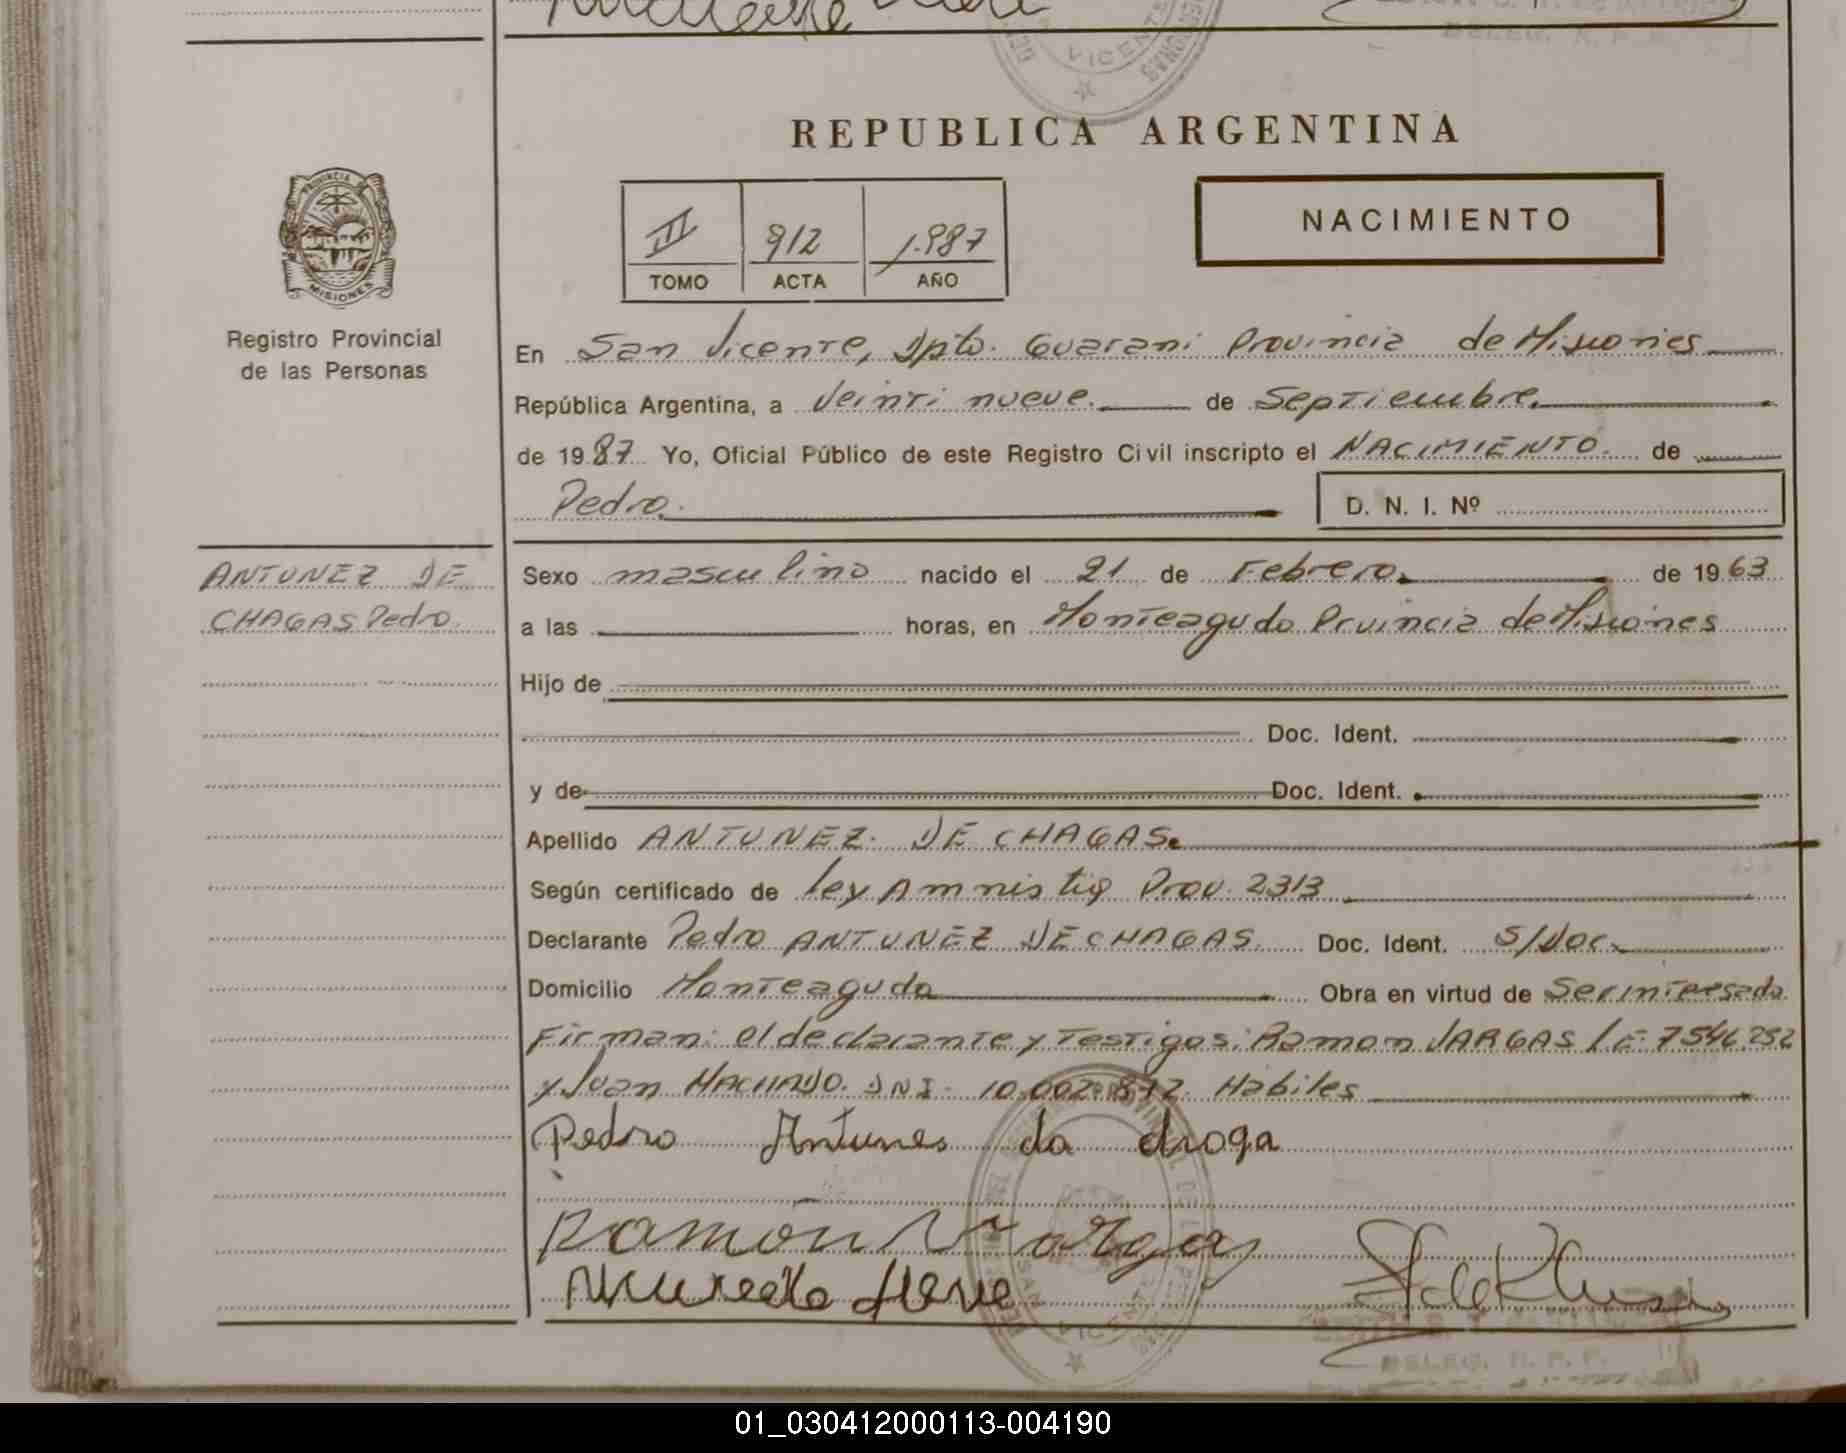 REPUBLICA ARGENTINA
PROVINCIA DE
MISIONES
Registro Provincial
de las Personas
III 912 1.987
TOMO ACTA AÑO
NACIMIENTO
En San Vicente, Dpto. Guarani Provincia de Misiones
República Argentina, a Veinti nueve. de Septiembre.
de 1987 Yo, Oficial Público de este Registro Civil inscripto el NACIMIENTO. de
Pedro. D. N. I. Nº
ANTUNEZ DE
CHAGAS Pedro.
Sexo masculino nacido el 21 de Febrero. de 1963
a las horas, en Monteagudo Pruincia de Misiones
Hijo de
Doc. Ident.
y de Doc. Ident.
Apellido ANTUNEZ. DE CHAGAS.
Según certificado de Ley Amnistia Prov. 2313
Declarante Pedro ANTUNEZ DE CHAGAS. Doc. Ident. S/Doc.
Domicilio Monteagudo Obra en virtud de Ser interesado.
Firman: el declarante y Testigos: Ramon VARGAS L.E. 7546.252
y Juan MACHADO. DNI. 10.002.872. Habiles
Pedro Antunes da droga
Ramón Vargas
VICENTE
DELEG. R. P. P.
01_030412000113-004190